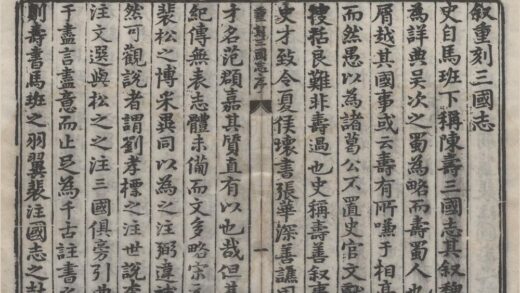 叙重刻三國志
史自馬班下稱陳壽三國志其叙魏
為詳典吳次之蜀為略而壽蜀人也
屑越其國事或云壽有所嗛于相
而然愚以為諸葛公不置史官文
搜括良難非壽過也史稱壽善叙事
史才致令夏侯壞書張華深善譙周
重刻三國志序
一
才名范頵嘉其質直有以也哉但其
紀傳無表志體未備而文多略宋
裴松之博采異同以為之注
然可觀說者謂劉孝標之注世說李
注文選與松之之注三國俱旁引典
千盡言盡意而止足為千古註書
則壽書馬班之羽翼裴注國志之